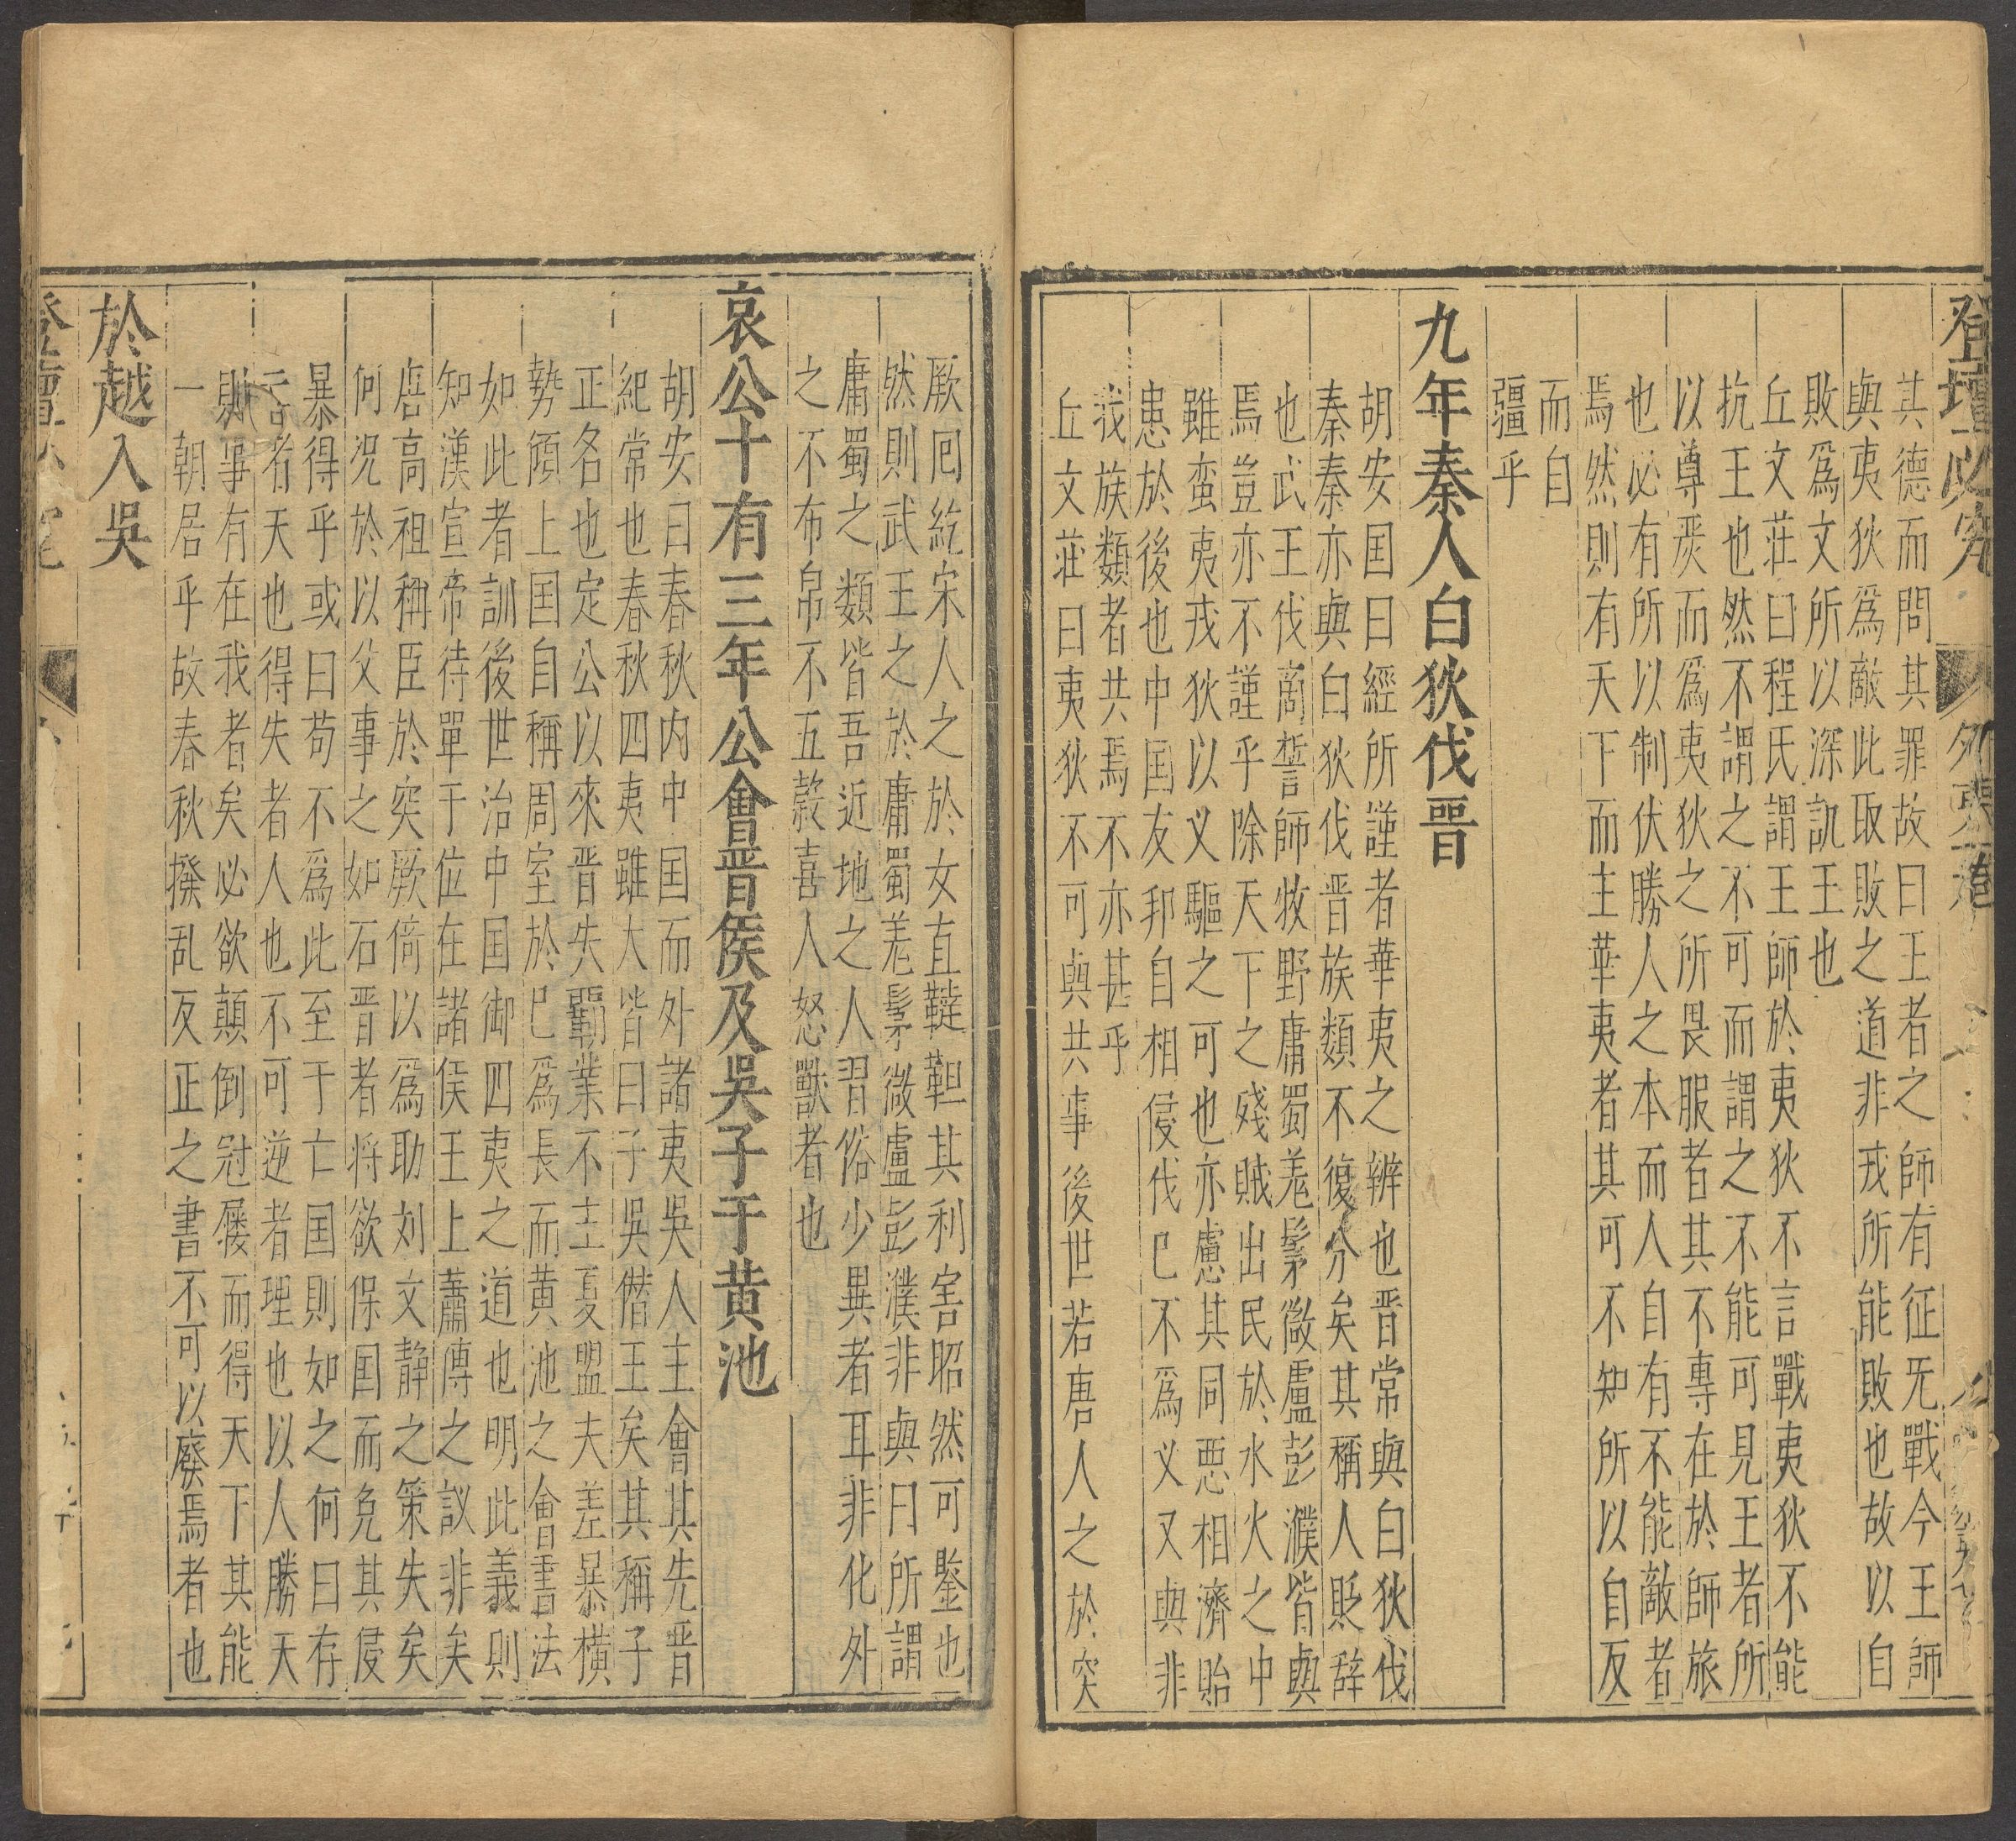 登壇必究
其德而問其罪故曰王者之師有征无戰今王師
與夷狄爲敵此取敗之道非戎所能敗也故以自
敗爲文所以深訊王也
丘文莊曰程氏謂王師於夷狄不言戰夷狄不能
抗王也然不謂之不可而謂之不能可見王者所
以尊㷊而爲夷狄之所畏服者其不專在於師旅
也必有所以制伏勝人之本而人自有不能敵者
焉然則有天下而主華夷者其可不知所以自反
而自
彊乎
九年秦人白狄伐晋
胡安囯曰經所謹者華夷之辨也晋常與白狄伐
秦秦亦與白狄伐晋族類不復分矣其稱人貶辞
也武王伐商誓師牧野庸蜀羌髳微盧彭濮皆與
焉豈亦不謹乎除天下之殘賊出民於水火之中
雖蛮夷戎狄以义驅之可也亦慮其同悪相濟貽
患於後也中囯友邦自相侵伐已不爲义又與非
我族類者共焉不亦甚乎
丘文莊曰夷狄不可與共事後世若唐人之於突
厥囘紇宋人之於女直韃靼其利害昭然可鍳也
然則武王之於庸蜀羌髳微盧彭濮非與曰所謂
庸蜀之類皆吾近地之人習俗少異者耳非化外
之不布帛不五穀喜人怒獸者也
哀公十有三年公會晋侯及吳子于黄池
胡安曰春秋内中囯而外諸夷吳人主會其先晋
紀常也春秋四夷雖大皆曰子吳僣王矣其稱子
正名也定公以來晋失霸業不主夏盟夫差暴横
勢傾上囯自稱周室於已爲長而黄池之會書法
如此者訓後世治中囯御四夷之道也明此義則
知漢宣帝待單于位在諸侯王上蕭傅之議非矣
唐高祖稱臣於突厥倚以爲助刘文静之策失矣
何况於以父事之如石晋者将欲保囯而免其侵
暴得乎或曰苟不爲此至于亡囯則如之何曰存
亡者天也得失者人也不可逆者理也以人勝天
則事有在我者矣必欲顛倒冠屨而得天下其能
一朝居乎故春秋撥乱反正之書不可以廢焉者也
於越入吳